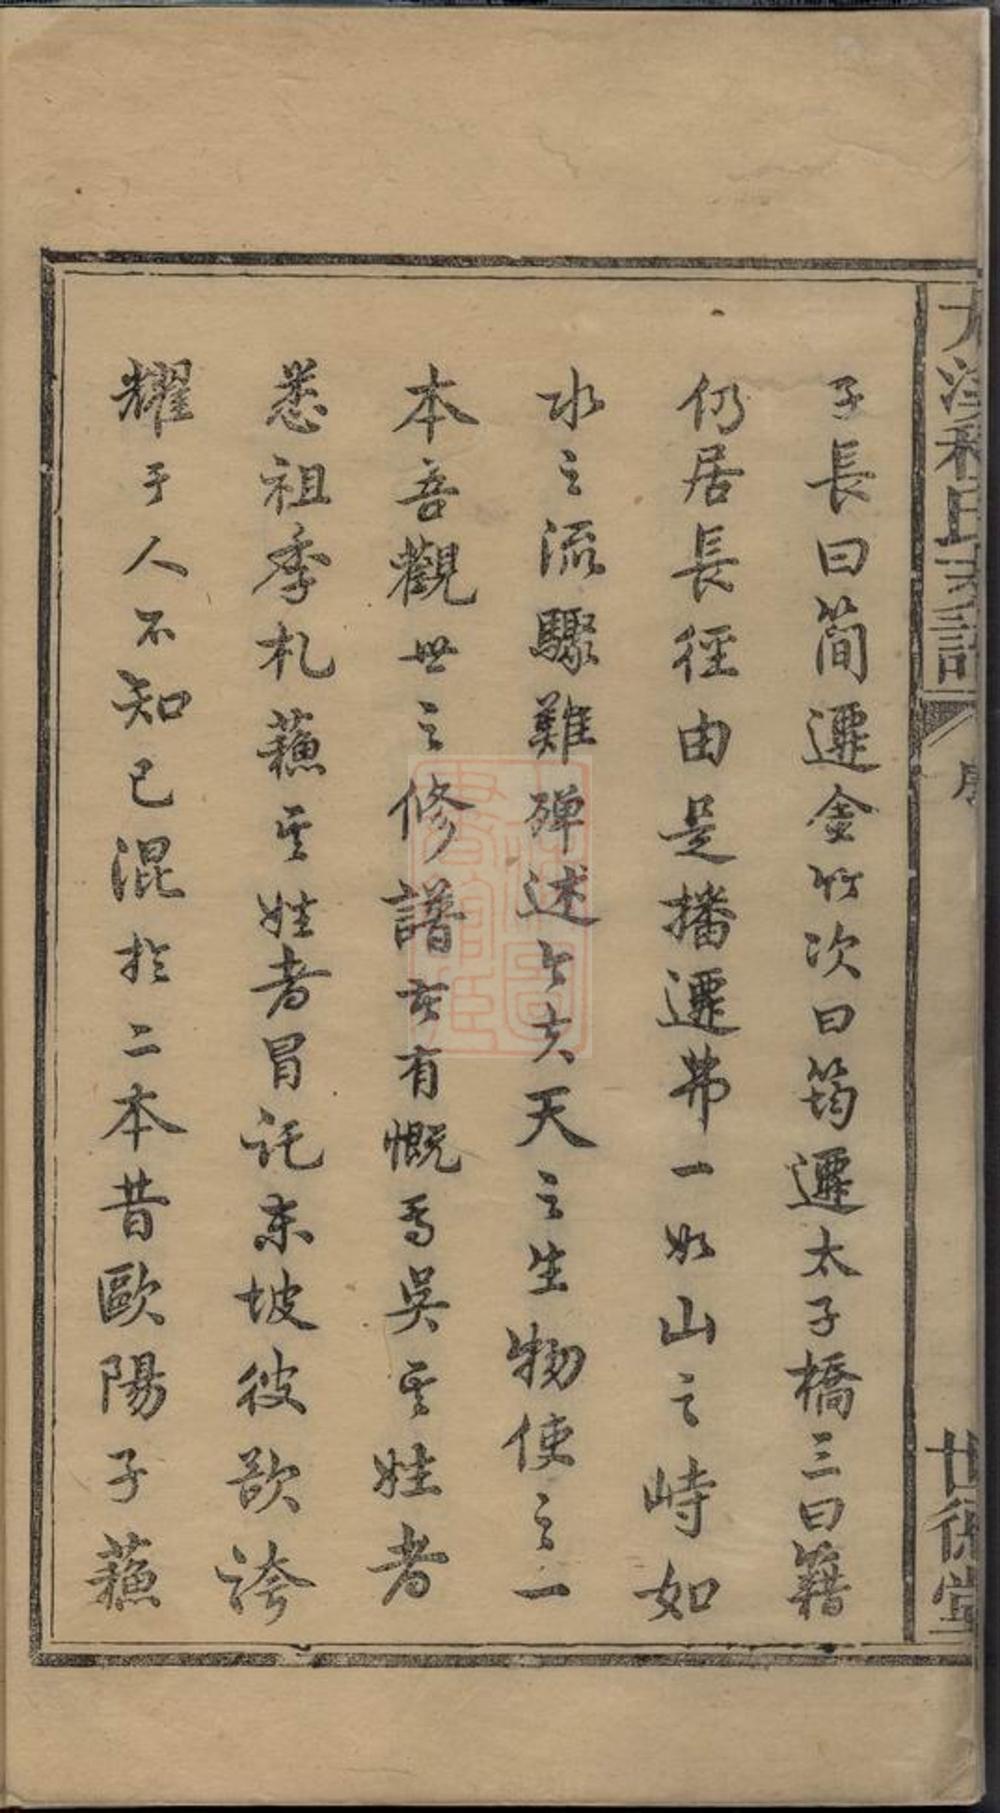 子長曰簡遷金竹次曰筠遷太子橋三曰籍
仍居長徑由是播遷弗一如山之峙如
水之流驟難殫述今夫天之生物使之一
本吾觀世之修譜者有慨焉吳其姓者
悉祖季札蘇其姓者冒託東坡彼欲誇
耀于人不知已混於二本昔歐陽子蘇
程氏支譜
序
世徳堂